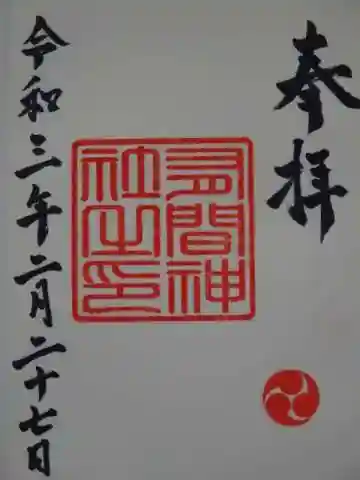 奉拝
有間神
社之印
令和三年二月二十七日